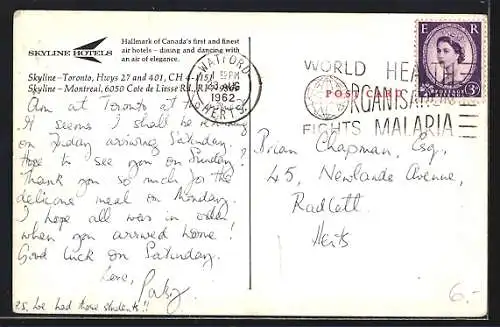 SKYLINE HOTELS
Hallmark of Canada's first and finest
air hotels - dining and dancing with
an air of elegance.
Skyline - Toronto, Hwys 27 and 401, CH 4-1151
Skyline - Montreal, 6050 Cote de Liesse Rd., RI
Am at Toronto at the
It seems I shall be
on Friday arriving Saturday.
Hope to see you on Sunday?
Thank you so much for the
delicious meal on Monday.
I hope all was in order
when you arrived home!
Good luck on Saturday.
Love,
P.S. we had those students!!
WATFORD
PM
AUG
1962
HERTS.
WORLD HEALTH
ORGANISATION
FIGHTS MALARIA
POST CARD
E R
POSTAGE REVENUE
3D
Brian Chapman, Esq.
45, Newlands Avenue,
Radlett
Herts
6.-